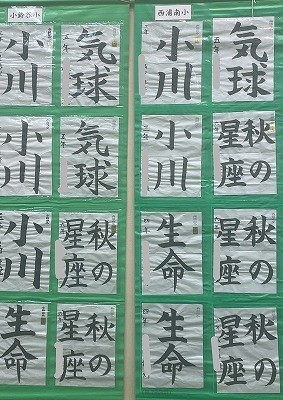 小鈴谷小
西浦南小
気球
小川
気球
小川
秋の
星座
小川
秋の
星座
生命
気球
五年
小川
三年
秋の
星座
小川
三年
秋の
星座
生命
四年
秋の
星座
生命
四年